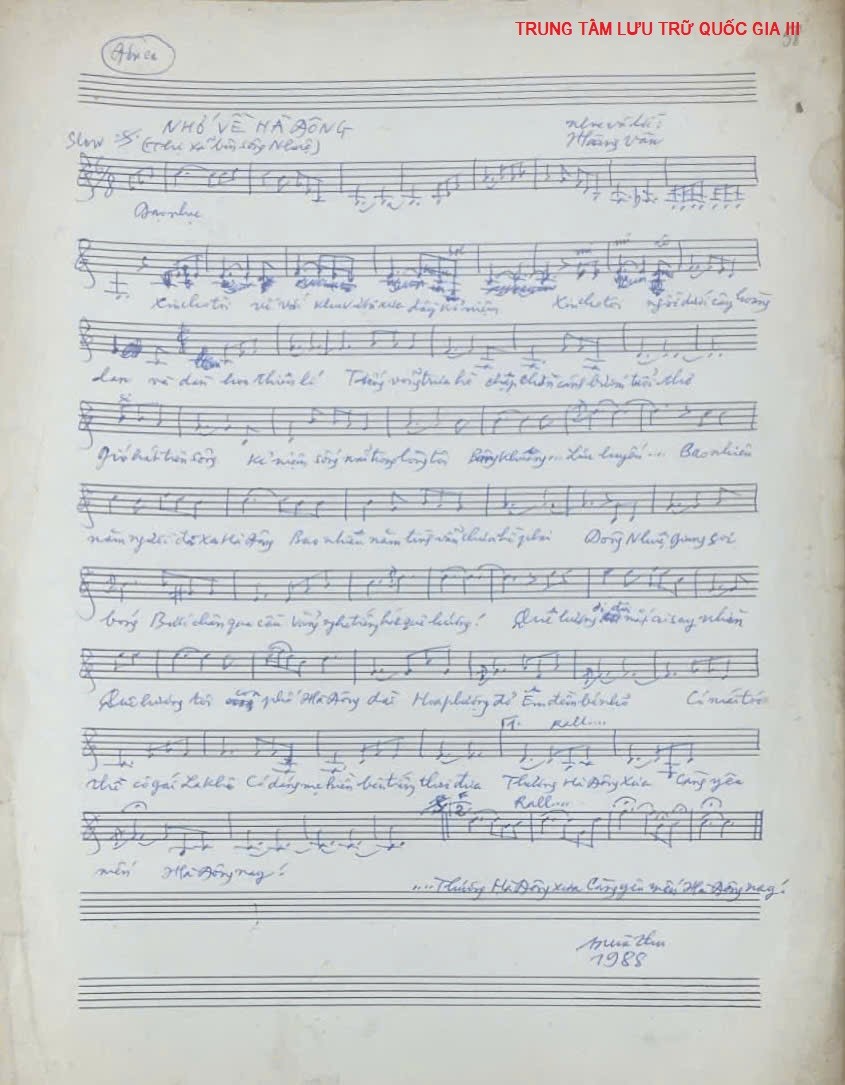 TRUNG TÂM LƯU TRỮ QUỐC GIA III
58
NHỚ VỀ HÀ ĐÔNG
Nhạc và lời:
Slow (Thị xã bên sông Nhuệ)
Hoàng Vân
Dạo nhạc
Xin cho tôi về với khu vườn xưa đầy kỉ niệm Xin cho tôi ngồi dưới cây hoàng
lan và dàn hoa thiên lí Tiếng võng trưa hè chập chờn cánh bướm tuổi thơ
Gió hát trên sông Kỉ niệm sống mãi trong lòng tôi Bâng khuâng... Lưu luyến... Bao nhiêu
năm người đã xa Hà Đông Bao nhiêu năm từng vẫn chưa hề phai Dòng Nhuệ Giang soi
bóng Bước chân qua cầu Vẳng nghe tiếng hát quê hương! Quê hương mắt ai say nhìn
Quê hương tôi con phố Hà Đông dài Hoa phượng đỏ Êm đềm bến nhỏ Có mái tóc
thề cô gái La Khê Có dáng mẹ hiền bên tiếng thoi đưa Thương Hà Đông xưa Càng yêu
1. Rall....
Rall....
2.
mến Hà Đông nay!
....Thương Hà Đông xưa Càng yêu mến Hà Đông nay!
Mùa thu
1988